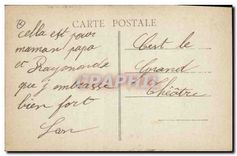 CARTE POSTALE
cella est pour
maman papa
et Raymonde
que j'embrasse
bien fort
C'est le
Grand
Théâtre